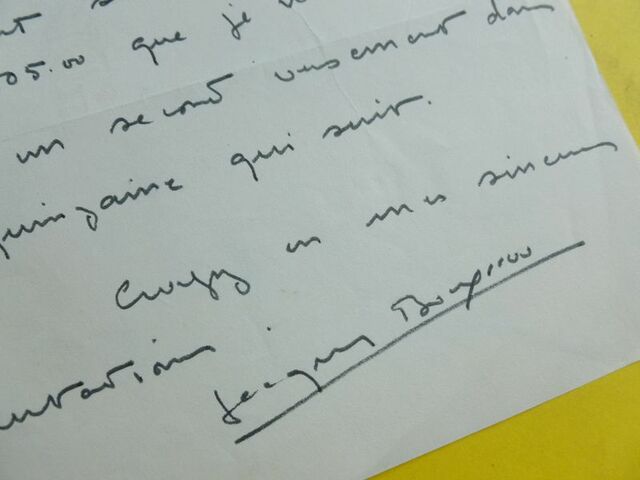 05.00 que je
un second versement dans
quinzaine qui suit.
Croyez en mes sincères
salutations.
Jacques